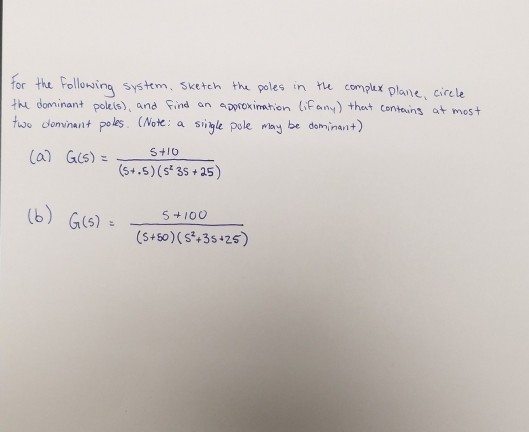 For the following system. Sketch the poles in the complex plane, circle
the dominant pole(s), and find an approximation (if any) that contains at most
two dominant poles. (Note: a single pole may be dominant)
(a) G(s) = S+10 / (S+.5)(S² 3S + 25)
(b) G(s) = S+100 / (S+50)(S²+3S+25)